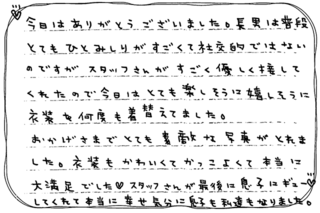 今日はありがとうございました。長男は普段
とてもひとみしりがすごくて社交的ではない
のですがスタッフさんがすごく優しく接して
くれたので今日はとても楽しそうに嬉しそうに
衣装を何度も着替えてました。
おかげさまでとても素敵な写真がとれま
した。衣装もかわいくてかっこよくて本当に
大満足でした♡スタッフさんが最後に息子にギュー♡
してくれて本当に幸せ気分に息子も私達もなりました。